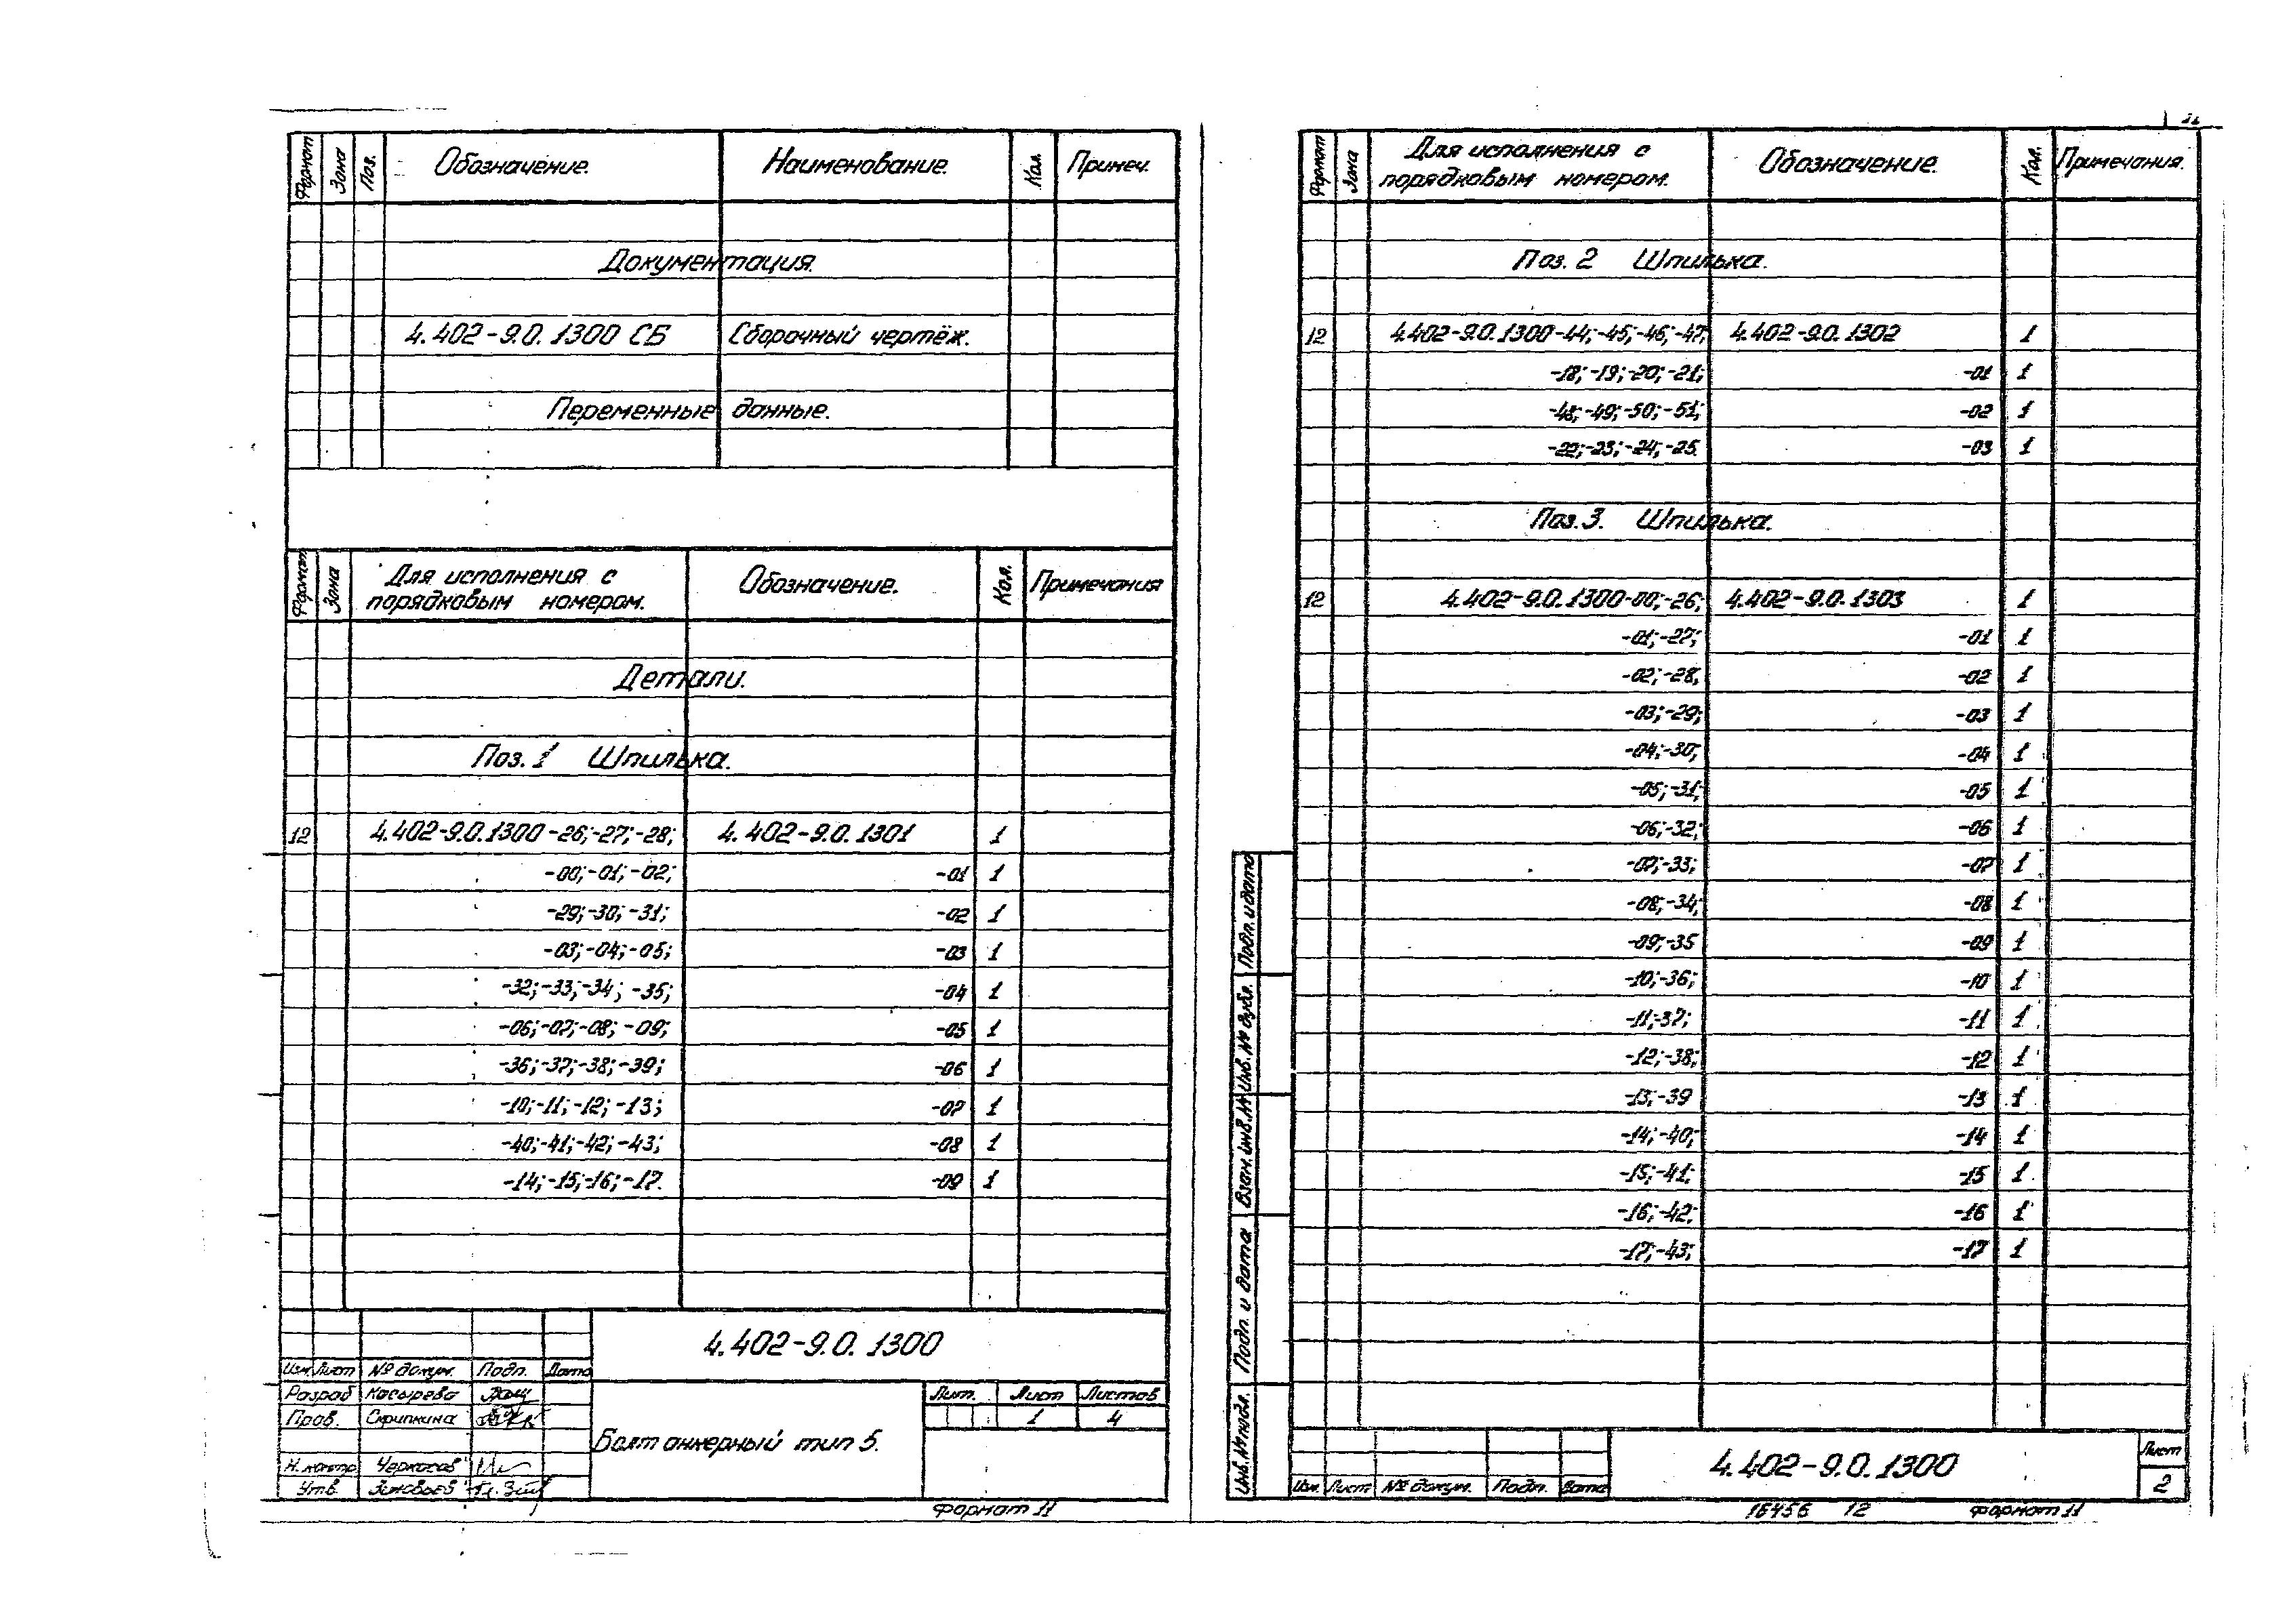 Формат Зона Поз. Обозначение. Наименование. Кол. Примеч.
Документация.
4.402-9.0.1300 СБ Сборочный чертёж.
Переменные данные.
Формат Зона Для исполнения с порядковым номером. Обозначение. Кол. Примечания
Детали.
Поз. 1 Шпилька.
12 4.402-9.0.1300-26;-27;-28; 4.402-9.0.1301 1
-00;-01;-02; -01 1
-29;-30;-31; -02 1
-03;-04;-05; -03 1
-32;-33;-34; -35; -04 1
-06;-07;-08; -09; -05 1
-36;-37;-38;-39; -06 1
-10;-11;-12;-13; -07 1
-40;-41;-42;-43; -08 1
-14;-15;-16;-17. -09 1
4.402-9.0.1300
Изм. Лист № докум. Подп. Дата
Разраб Косырева
Пров. Скрипкина
Н. контр Черкасов
Утв. Зиновьев
Болт анкерный тип 5.
Лит. Лист Листов
1 4
Формат 11
Формат Зона Для исполнения с порядковым номером. Обозначение. Кол. Примечания.
Поз. 2 Шпилька.
12 4.402-9.0.1300-44;-45;-46;-47; 4.402-9.0.1302 1
-18;-19;-20;-21; -01 1
-48;-49;-50;-51; -02 1
-22;-23;-24;-25. -03 1
Поз. 3. Шпилька.
12 4.402-9.0.1300-00;-26; 4.402-9.0.1303 1
-01;-27; -01 1
-02;-28, -02 1
-03;-29; -03 1
-04;-30; -04 1
-05;-31; -05 1
-06;-32; -06 1
-07;-33; -07 1
-08;-34; -08 1
-09;-35 -09 1
-10;-36; -10 1
-11;-37; -11 1
-12;-38; -12 1
-13;-39 -13 1
-14;-40; -14 1
-15;-41; -15 1
-16;-42; -16 1
-17;-43; -17 1
Инв. № подл. Подп. и дата Взам. инв. № Инв. № дубл. Подп. и дата
Изм. Лист № докум. Подп. Дата
4.402-9.0.1300
Лист
2
16456 12 Формат 11